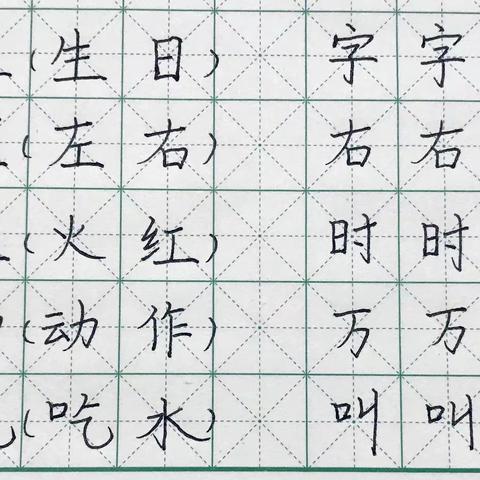 (生日) 字字
(左右) 右右
(火红) 时时
(动作) 万万
(吃水) 叫叫